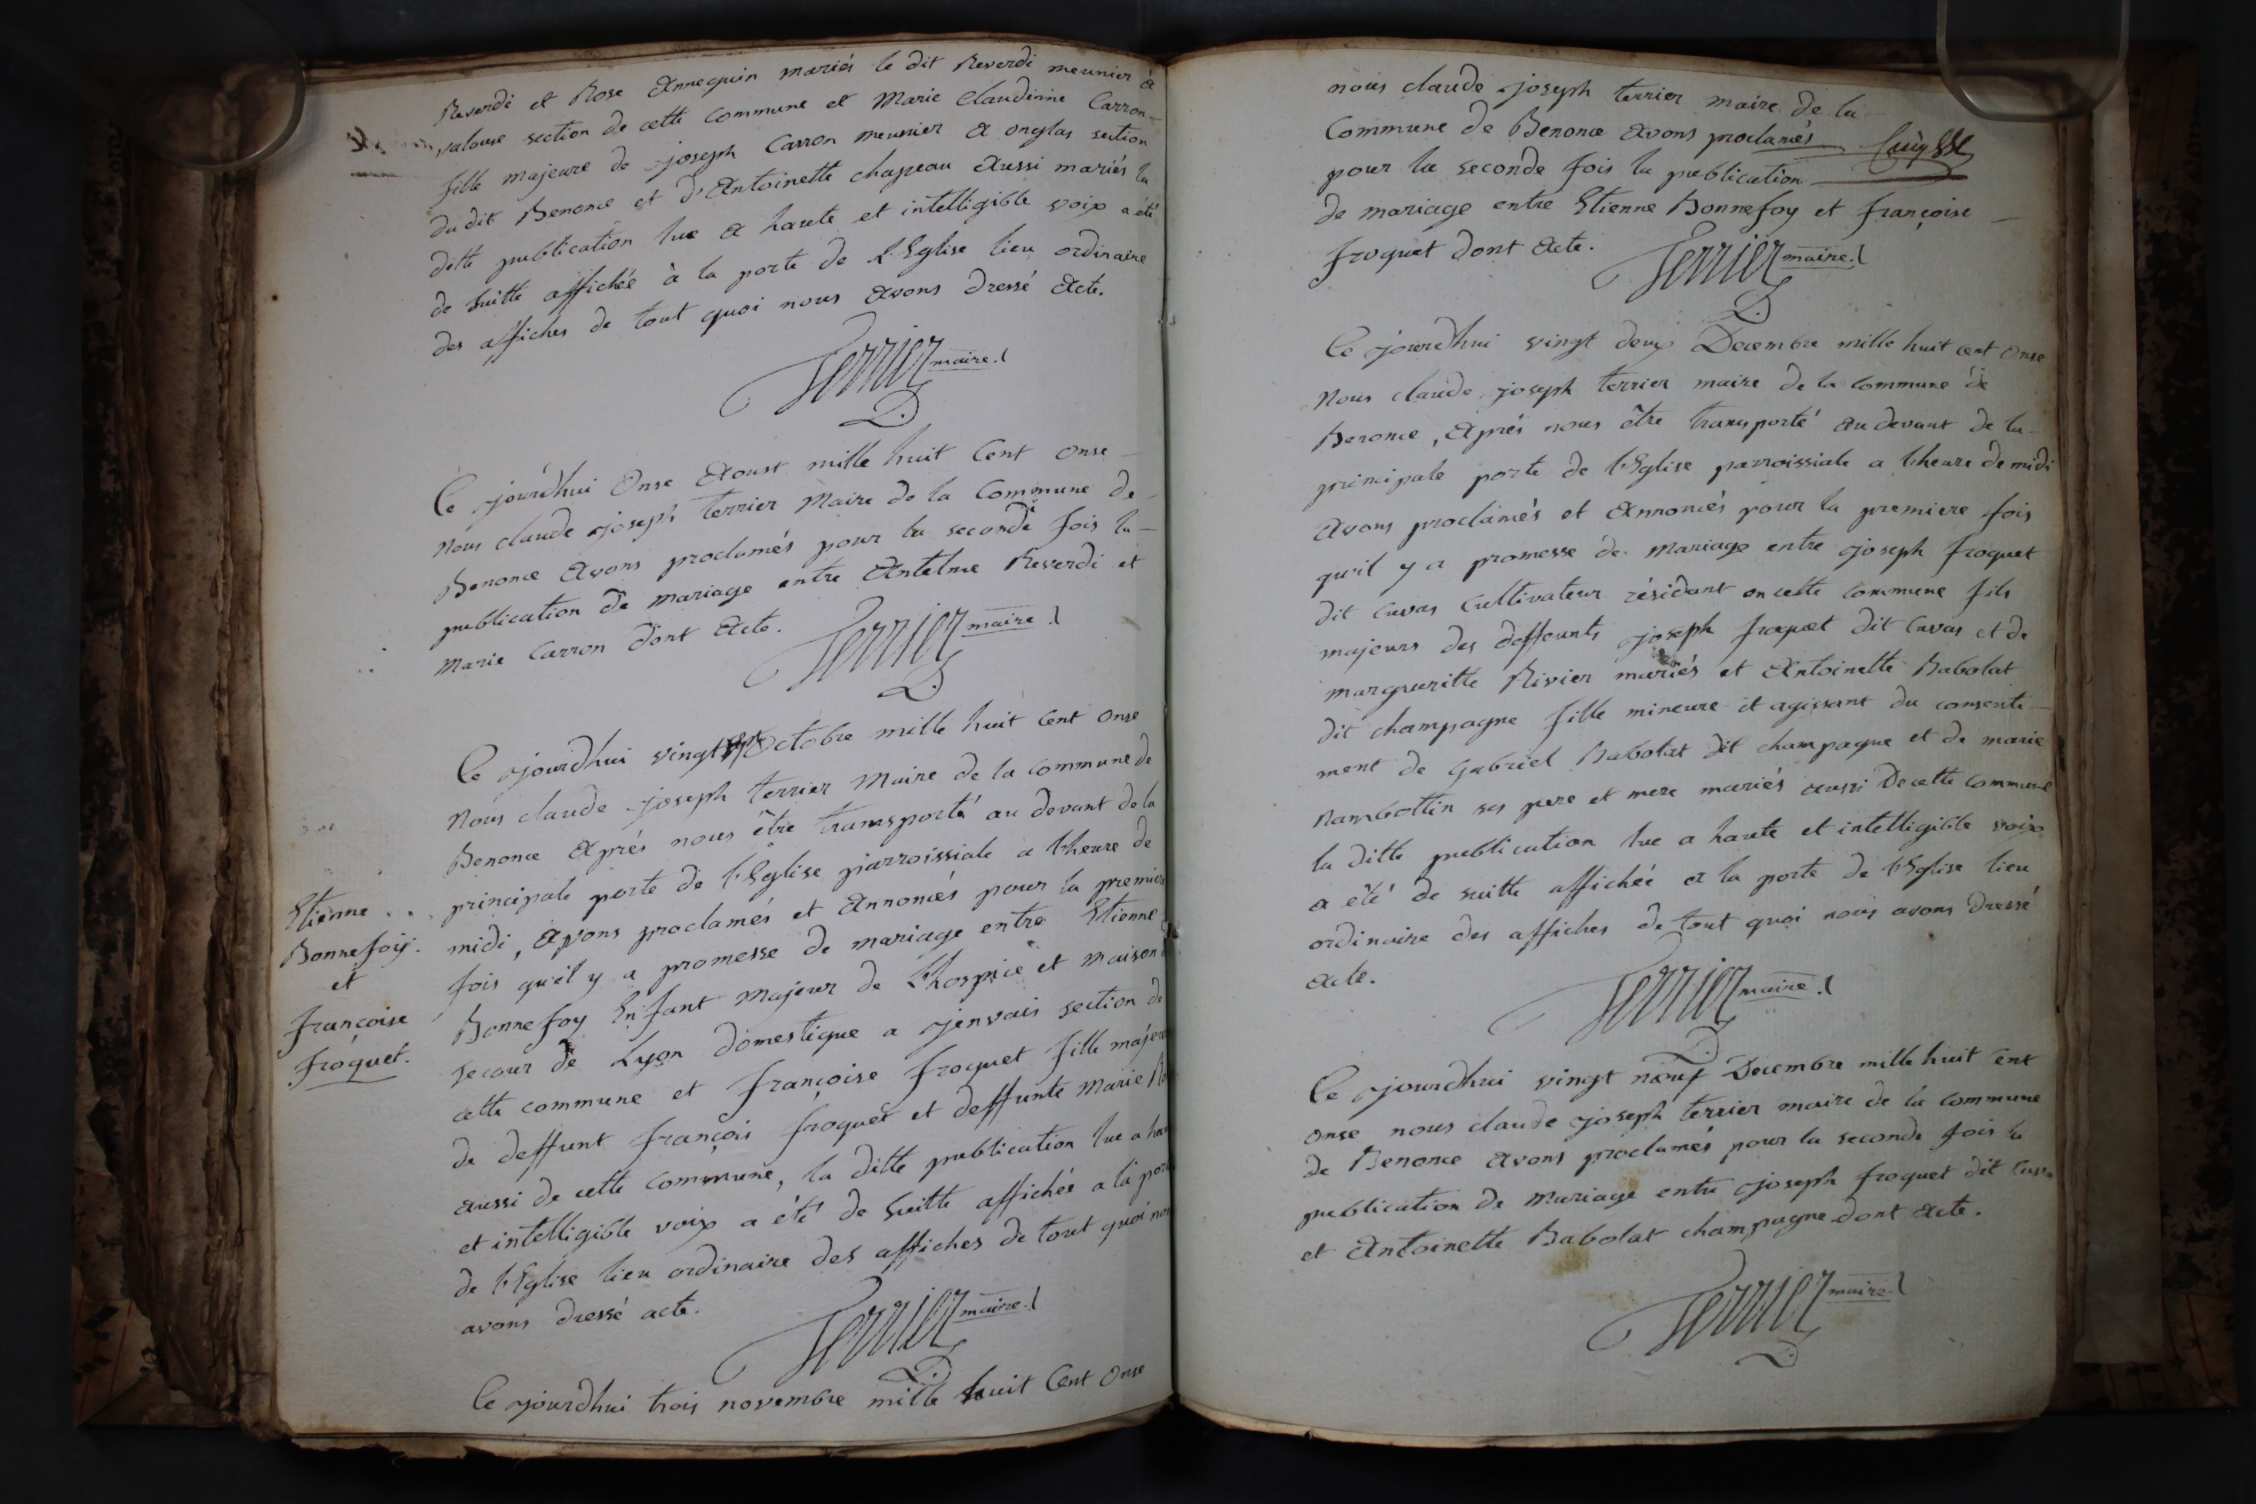 Reverdi et Rose Annequin mariés le dit Reverdi meunier à
valouse section de cette Commune et Marie Claudinne Carron
fille majeure de joseph Carron meunier a onglas section
du dit Benonce et d'Antoinette chapeau aussi mariés la
ditte publication lue a haute et intelligible voix a été
de suitte affichée à la porte de L'Eglise lieu ordinaire
des affiches de tout quoi nous avons dressé Acte.
Terrier maire
Ce jourd'hui Onse Aoust mille huit Cent onse
Nous claude joseph terrier Maire de la Commune de
Benonce avons proclamés pour la seconde fois la
publication de mariage entre Antelme Reverdi et
Marie Carron dont Acte.
Terrier maire
Ce jourdhui vingt sept Octobre mille huit Cent onse
Nous claude joseph terrier Maire de la commune de
Benonce Aprés nous être transporté au devant de la
principale porte de l'Eglise parroissiale a l'heure de
midi, Avons proclamés et Annoncés pour la premiere
fois qu'il y a promesse de mariage entre Etienne
Bonnefoy Enfant Majeur de L'hospice et maison de
secour de Lyon domestique a jenvais section de
cette commune et françoise froquet fille majeure
de deffunt françois froquet et deffunte Marie
aussi de cette Commune, la ditte publication lue a haute
et intelligible voix a été de suitte affichée a la porte
de l'Eglise lieu ordinaire des affiches de tout quoi nous
avons dressé acte.
Terrier maire
Ce jourdhui trois novembre mille huit Cent Onse
Etienne
Bonnefoy.
et
françoise
froquet.
nous claude joseph terrier maire de la
Commune de Benonce avons proclamés
pour la seconde fois la publication
de mariage entre Etienne Bonnefoy et françoise
froquet dont Acte.
Terrier maire
Ce jourdhui vingt deux Decembre mille huit cent onse
Nous claude joseph terrier maire de la commune de
Benonce, Aprés nous être transporté au devant de la
principale porte de l'Eglise parroissiale a l'heure de midi
Avons proclamés et Annoncés pour la premiere fois
qu'il y a promesse de mariage entre joseph froquet
dit cuvas Cultivateur résidant en cette commune fils
majeurs des deffunts joseph froquet dit cuvas et de
margueritte Rivier mariés et Antoinette Babolat
dit champagne fille mineure et agissant du consenti
ment de Gabriel Babolat dit champagne et de marie
Rambottin ses pere et mere mariés aussi De cette commune
la ditte publication lue a haute et intelligible voix
a été de suitte affichée a la porte de l'Eglise lieu
ordinaire des affiches de tout quoi nous avons dressé
acte.
Terrier maire
Ce jourdhui vingt neuf Decembre mille huit Cent
onse nous claude joseph terrier maire de la commune
de Benonce Avons proclamés pour la seconde fois la
publication de Mariage entre joseph froquet dit cuvas
et Antoinette Babolat champagne dont Acte.
Terrier maire